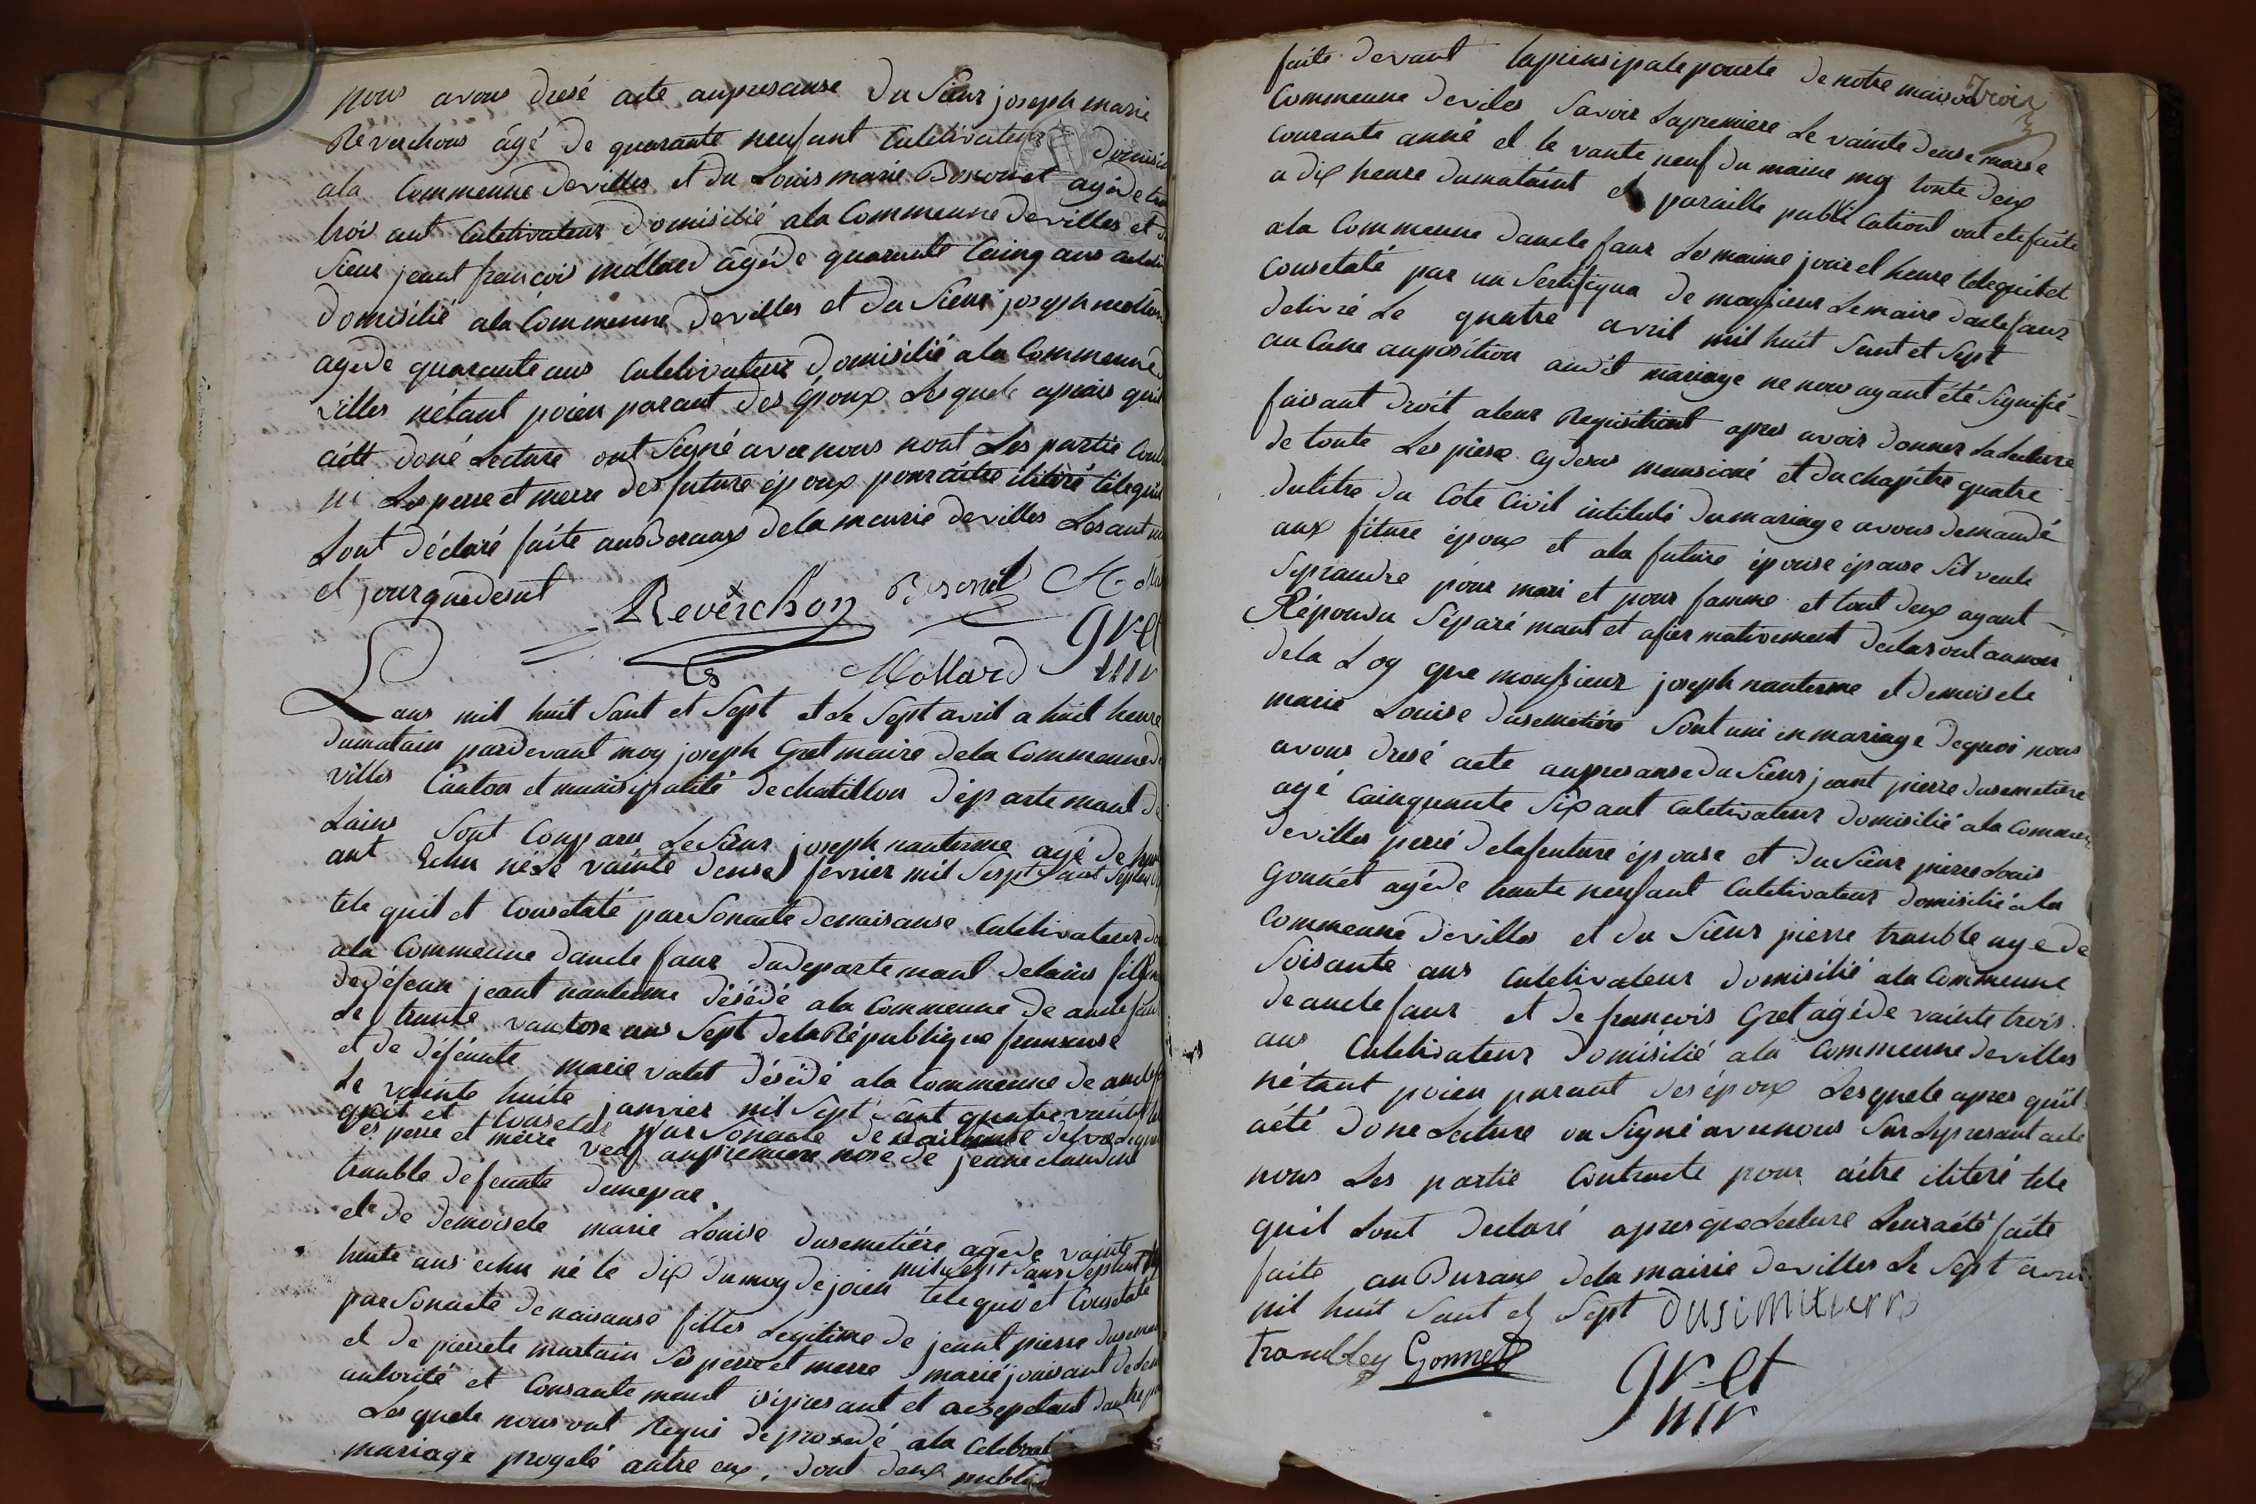 nous avons dresé acte aupresanse du Sieur joseph marie
Reverchons âgé de quarante neufant Culetivateur domisi
ala Commeune devilles et du Louis marie Bosonnet agéde tra
trois ant Culetivateur domisilié ala Commeune devilles et d
Sieur jeant françois mollard âgéde quarante Cainq ans
domisilié ala Commeune devilles et du Sieur joseph
agéde quarante ans Culetivateur domisilié ala Commeune d
villes nétant poien parant des époux Lesquels apraïs quil
aiét doné Lecture ont Signé avec nous nont Les partie Cont
ni Les perre et merre des future époux pour aitre iliteré tele quil
Lont déclaré faite aus Beraux dela meurie devilles Les ant m
et jour que desut Reverchon Bosonet
Mollard gret
mr
Lans mil huit Sant et Sept et Le Sept avril a huit heure
dumatain pardevant moy joseph Gret maire dela Commeune d
villes Canton et munisipalité dechatillon département de
Lains Sont Comparu Le Sieur joseph nanterme agé de tran
ant Echu né Le vainte deuse février mil Sept Sant Septen
tele quil et Consetaté par Sonacte denaisanse Culetivateur do
ala Commeune dancle faur dudepartemant delains fils
dedéfeun jeant nanterme désédé ala Commeune de ancle faur
Le trante vantose ans Sept dela République franseuse
et de défeunte marie valet désédé ala Commeune de ancle f
Le vainte huite janvier mil Sept Sant quatre vaint
quil et Consetaté par Sonacte de
es perre et mere veuf aupremiere nose de jeane claudine
trouble defeunte
et de demoisele marie Louise dusemetiére agéde vainte
huite ans echu né le dix dumoy dejoien mil Sept Sans Septente tele quil et Consetaté
par Sonacte denaisanse filles Legitime de jeant pierre duseme
et de pierrete martain Ses perre et merre marié jouisant de
autorité et Consantemant isipresant et acseptant dautre pa
Les quele nous ont Requi deprosedé ala Celebrati
mariage progeté antre eux, dont deux public
faite devant laprinsipale pourte de notre maison Trois
Commeune deviles Savoir Lapremiere Le vainte deuse marse
Courante anné et le vante neuf du maime moy toute deux
a dix heure dumataint et paraille publication ont etefaite
ala Commeune dancle faur Les maime jour et heure telequilet
Consetaté par un Sertifiqua de monsieur Lemaire dacle faur
delivré Le quatre avril mil huit Sant et Sept
au Cune auposition audit mariage ne nous ayant été Signifié
faisant droit aleur Requisitiont apres avoir donner Lalecture
de toute Les pièse cydesus mansioné et du chapitre quatre
dutitre du Cote Civil intitulé du mariage avons demandé
aux fiture époux et ala future épouse épouse Sil veule
Seprandre pour mari et pour famme et tout deux ayant
Répondu Séparémant et afiermativement declaront aunom
dela Loy que monsieur joseph nanterme et demoisele
marie Louise dusemetiére Sont uni en mariage dequoi nous
avons dresé acte aupresanse du Sieur jeant pierre dusemetiére
agé Cainquante Sixant Culetivateur domisilié ala Commeun
devilles perré delafeuture épouse et du Sieur pierre Louis
Gonnét agéde trante neufant Culetivateur domisilié ala
Commeune devilles et du Sieur pierre trouble age de
Soisante ans Culetivateur domisilié ala Commeune
deancle faur et de francois Gret agéde vainte trois
ans Culetivateur domisilié ala Commeune devilles
nétant poien parant des époux Lesquele apres quil
aété done Lecture on Signé avec nous Sur Lepresant acte
nous Les partie Contracte pour aitre iliteré tele
quil Lont declaré apres que Lecture Leuraété faite
faite au Buraux dela mairie devilles Le Sept avri
mil huit Sant et Sept dusimitierre
Trambley Gonnet
gret
mr